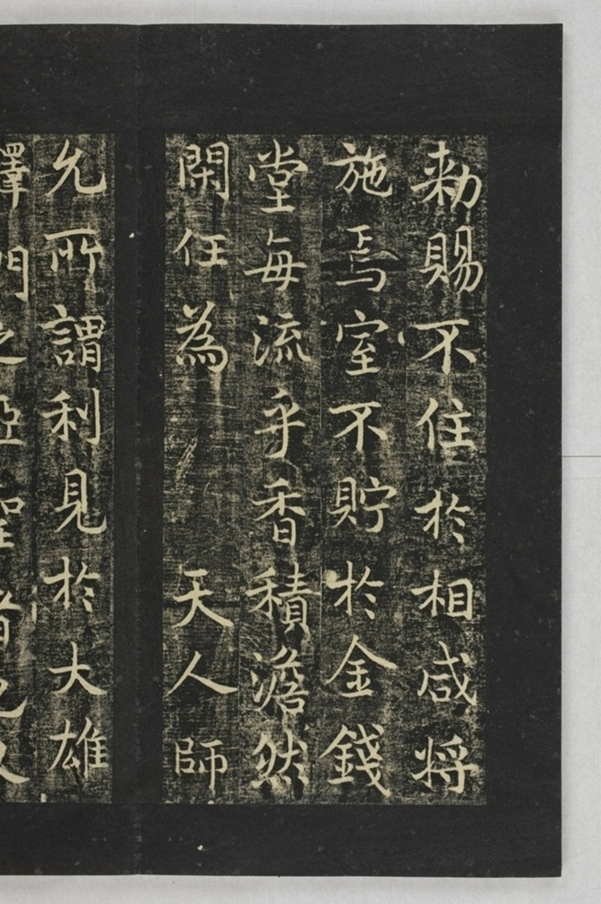 勑賜不住於相咸将
施焉室不貯於金錢
堂每流乎香積澹然
閑任為 天人師
允所謂利見於大雄
釋門之亞聖者已又